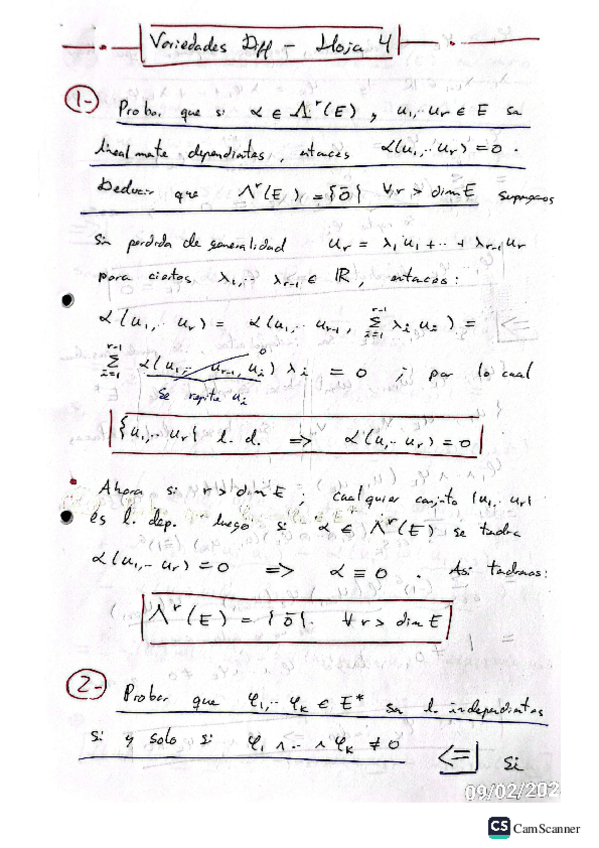 Variedades Diff - Hoja 4
1- Probar que si α ∈ Λʳ(E), u₁,·· uᵣ ∈ E son
linealmente dependientes, entonces α(u₁,·· uᵣ) = 0.
Deducir que Λʳ(E) = {0̄} ∀r > dim E supongamos
sin perdida de generalidad uᵣ = λ₁u₁ + ·· + λᵣ₋₁uᵣ
para ciertos λ₁,·· λᵣ₋₁ ∈ ℝ, entonces:
α(u₁,·· uᵣ) = α(u₁,·· uᵣ₋₁, Σᵢ₌₁ʳ⁻¹ λᵢ uᵢ) =
Σᵢ₌₁ʳ⁻¹ α(u₁,·· uᵣ₋₁, uᵢ) λᵢ = 0 ; por lo cual
0
se repite uᵢ
{u₁,·· uᵣ} l. d. => α(u₁,·· uᵣ) = 0
• Ahora si r > dim E, cualquier conjunto {u₁,·· uᵣ}
es l. dep. luego si α ∈ Λʳ(E) se tendra
α(u₁,·· uᵣ) = 0 => α ≡ 0. Asi tendremos:
Λʳ(E) = {0̄}. ∀ r > dim E
2- Probar que φ₁,·· φₖ ∈ E* son l. independientes
si y solo si φ₁ ∧ ·· ∧ φₖ ≠ 0 <=] Si
09/02/202
CS CamScanner